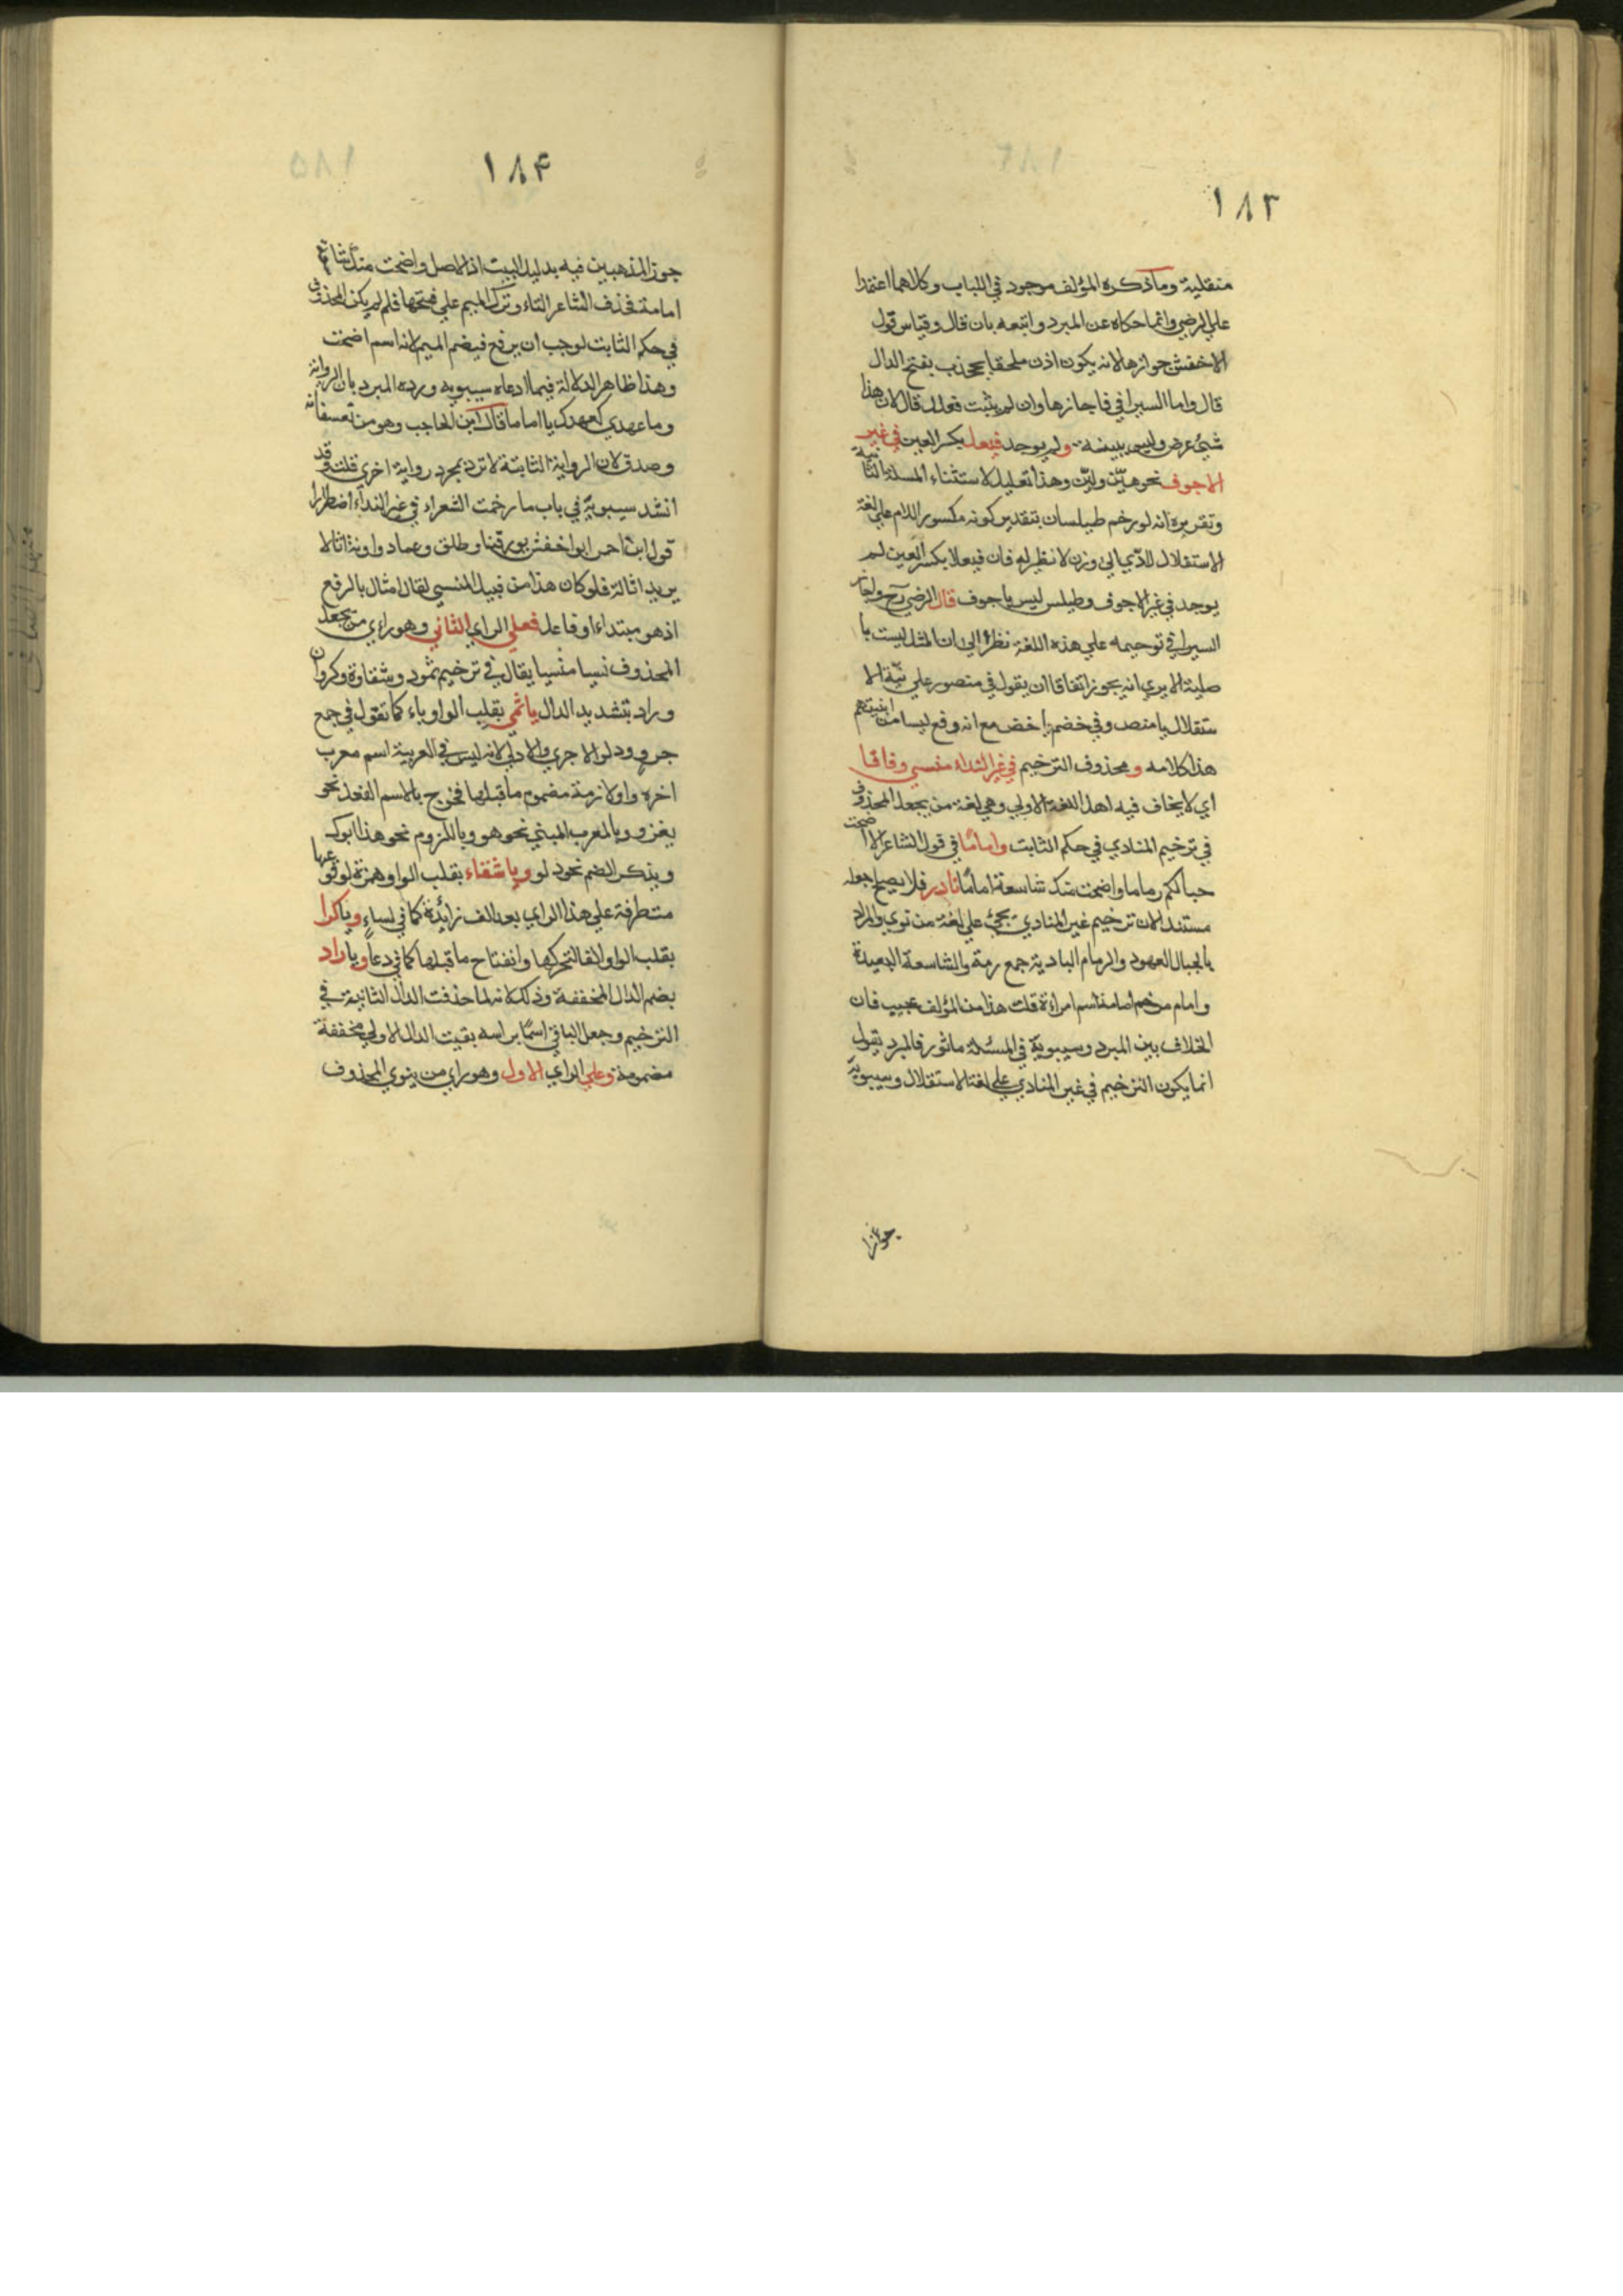 ١٨٣
منقلبة وما ذكره المؤلف موجود في اللباب وكلاهما اعتمدا
علي الرضي وانما حكاه عن المبرد واتبعه بان قال وقياس قول
الاخفش جوازها لانه يكون اذن ملحقا بجخدب بفتح الدال
قال واما السيرافي فاجازها وان لم يثبت فعلل قال لان هذا
شيء عرض وليس ببينة ولم يوجد فيعل بكسر العين في غير
الاجوف نحو هيّن وليّن وهذا تعليل لاستثناء المسئلة الثانية
وتقريره انه لو رخم طيلسان بتقدير كونه مكسور اللام علي لغة
الاستقلال لادّي الي وزن لا نظير له فان فيعلا بكسر العين لم
يوجد في غير الاجوف وطيلس ليس باجوف قال الرضي رح واجاز
السيرافي ترخيمه علي هذه اللغة نظرا الي ان المثل ليست با
صلية الا يري انه يجوز اتفاقا ان يقول في منصور علي نيّة الا
ستقلال يا منص وفي خضم يا خض مع انه وقع ليسا من ابنيتهم
هذا كلامه و محذوف الترخيم في غير النداء منسي وفاقا
اي لا يخاف فيه اهل اللغة الاولي وهي لغة من يجعل المحذوف
في ترخيم المنادي في حكم الثابت وامامًا في قول الشاعر الا اضحت
حبالكم رماما واضحت منك شاسعة امامًا نادر فلا يصح جعله
مستندا لان ترخيم غير المنادي يجيء علي لغة من نوي والمراد
بالحبال العهود والرمام البادية جمع رمة والشاسعة البعيدة
وامام مرخم امامة اسم امراءة قلت هذا من المؤلف عجيب فان
الخلاف بين المبرد وسيبويه في المسئلة ماثور فالمبرد يقول
انما يكون الترخيم في غير المنادي علي لغة الاستقلال وسيبويه
١٨۴
جوز المذهبين فيه بدليل البيت اذ الاصل واضحت منك شاسعة
امامة فحذف الشاعر التاء وترك الميم علي فتحها فلم لم يكن المحذوف
في حكم الثابت لوجب ان يرفع فيضم الميم لانه اسم اضحت
وهذا ظاهر الدلالة فيما ادعاه سيبويه ورده المبرد بان الرواية
وما عهدي كعهدك يا اماما قال ابن الحاجب وهو من تعسفاته
وصدق لان الرواية الثابتة لا ترد بمجرد رواية اخري قلت وقد
انشد سيبويه في باب ما رخمت الشعراء في غير النداء اضطرارا
قول ابن احمر ابو احنش يورقنا وطلق وعماد واونة اثالا
يريد اثالة فلو كان هذا من قبيل المنسي لقال اثال بالرفع
اذ هو مبتداء او فاعل فعلي الراي الثاني وهو راي من يجعل
المحذوف نسيا منسيا يقال في ترخيم ثمود وشقاوة وكروان
وراد بتشديد الدال يا ثمي بقلب الواو ياء كما تقول في جمع
جرو ودلو الاجري والادلي لانه ليس في العربية اسم معرب
اخره واو لازمة مضموم ما قبلها فخرج بالاسم الفعل نحو
يغزو وبالمعرب المبني نحو هو وباللزوم نحو هذا ابوك
وبذكر الضم نحو دلو ويا شقاء بقلب الواو همزة لوقوعها
متطرفة علي هذا الراي بعد الف زائدة كما في كساء ويا كرا
بقلب الواو الفا لتحركها وانفتاح ما قبلها كما في دعا ويا راد
بضم الدال المخففة وذلك لانه لما حذفت الدال الثانية في
الترخيم وجعل الباقي اسمًا براسه بقيت الدال الاولي مخففة
مضمومة وعلي الراي الاول وهو راي من ينوي المحذوف